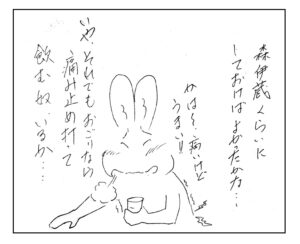 森伊蔵くらいに
しておけばよかったかな…
かは〜っ痛いけど
うまい!!
いや、それでもおごりなら
痛み止め打って
飲む奴、いるか…